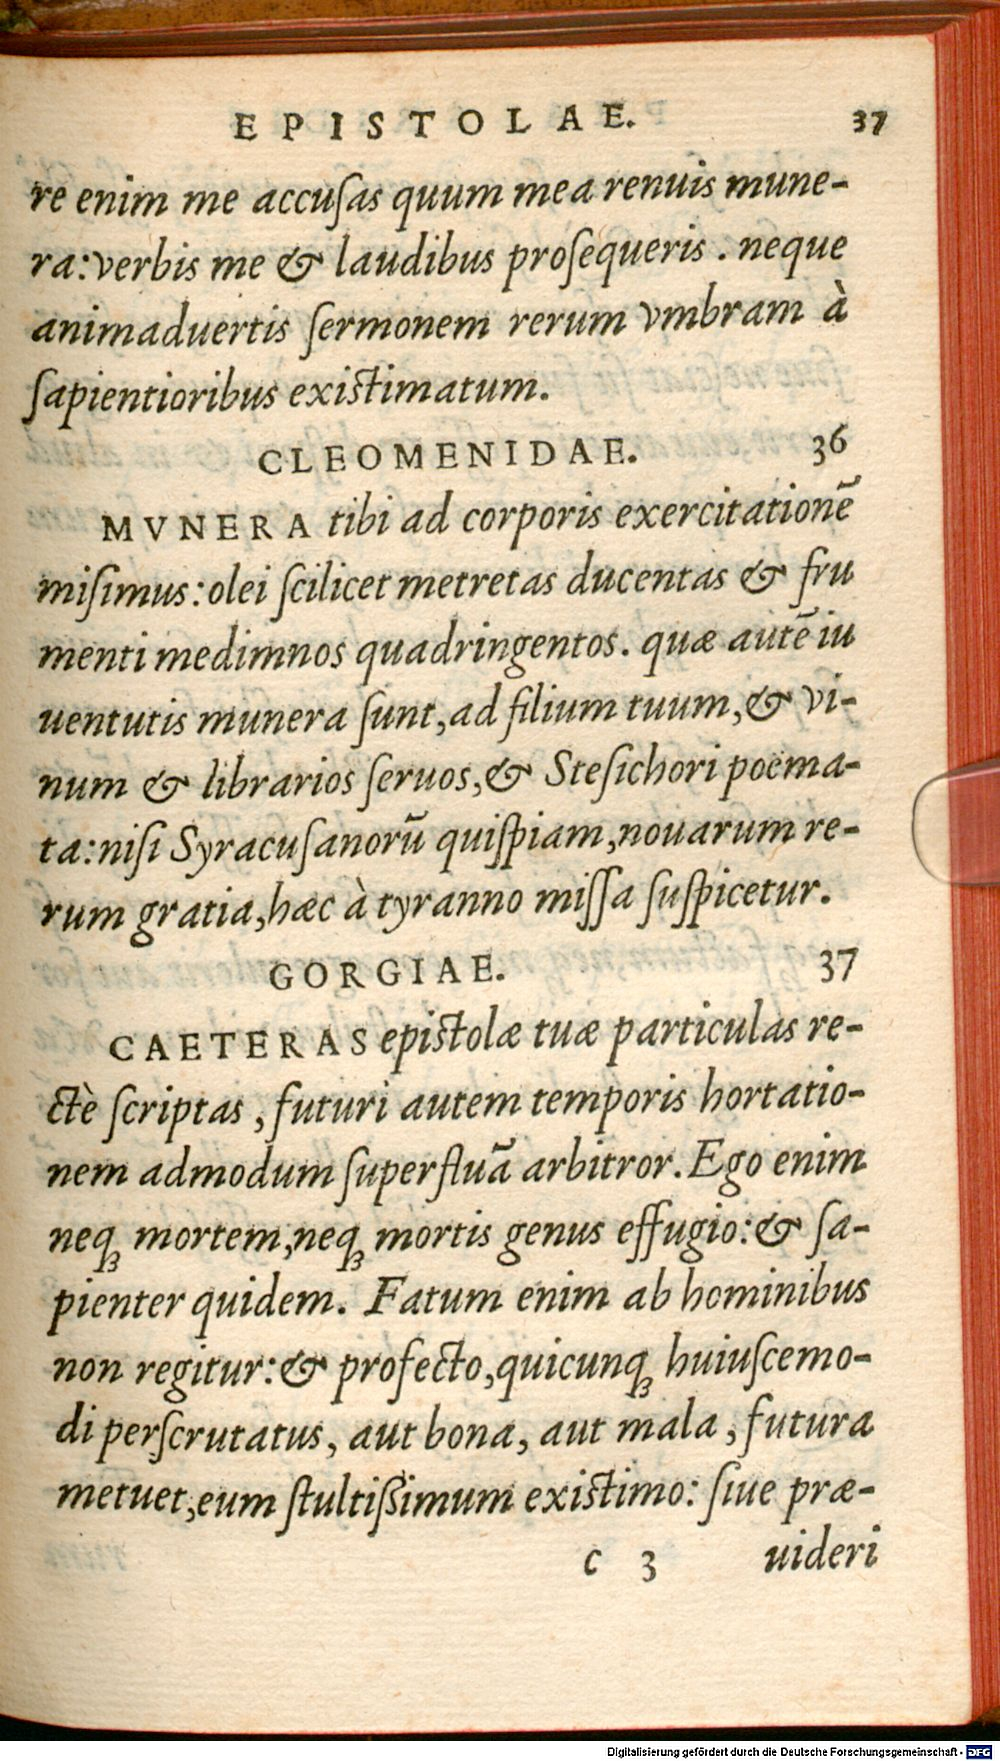 EPISTOLAE. 37
re enim me accuſas quum mea renuis mune-
ra: verbis me & laudibus proſequeris. neque
animaduertis ſermonem rerum vmbram à
ſapientioribus existimatum.
CLEOMENIDAE. 36
MVNERA tibi ad corporis exercitationē
miſimus: olei ſcilicet metretas ducentas & fru
menti medimnos quadringentos. quæ autē iu
uentutis munera ſunt, ad filium tuum, & vi-
num & librarios ſeruos, & Steſichori poëma-
ta: niſi Syracuſanorū quiſpiam, nouarum re-
rum gratia, hæc à tyranno miſſa ſuſpicetur.
GORGIAE. 37
CAETERAS epistolæ tuæ particulas re-
ctè ſcriptas, futuri autem temporis hortatio-
nem admodum ſuperfluā arbitror. Ego enim
neqꝫ mortem, neqꝫ mortis genus effugio: & ſa-
pienter quidem. Fatum enim ab hominibus
non regitur: & profecto, quicunqꝫ huiuſcemo-
di perſcrutatus, aut bona, aut mala, futura
metuet, eum ſtultißimum existimo: ſiue præ-
c 3 uideri
Digitalisierung gefördert durch die Deutsche Forschungsgemeinschaft - DFG